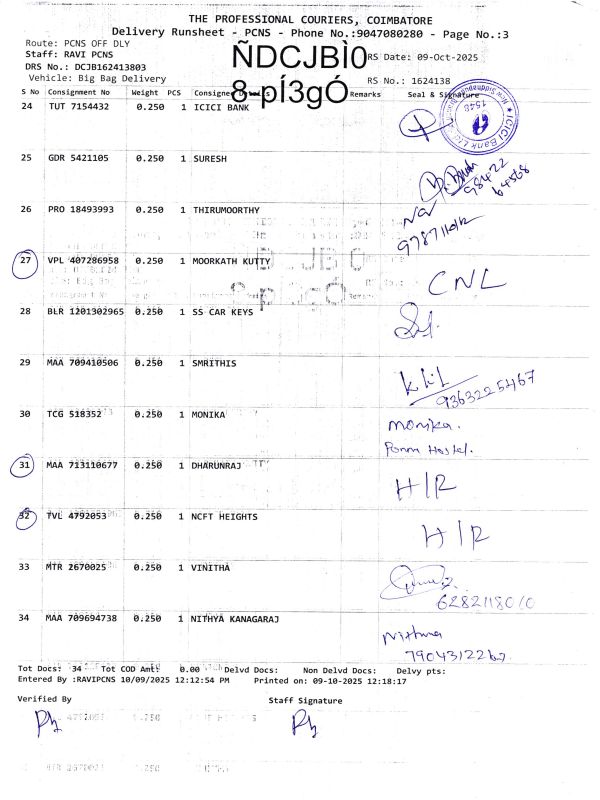 THE PROFESSIONAL COURIERS, COIMBATORE
Delivery Runsheet - PCNS - Phone No.:9047080280 - Page No.:3
Route: PCNS OFF DLY
Staff: RAVI PCNS
ÑDCJBÌ0
RS Date: 09-Oct-2025
DRS No.: DCJB162413803
Vehicle: Big Bag Delivery
8-pÍ3gÓ
RS No.: 1624138
S No Consignment No Weight PCS Consignee Details Remarks Seal & Signature
24 TUT 7154432 0.250 1 ICICI BANK
ICICI Bank
1548
25 GDR 5421105 0.250 1 SURESH
98422
64568
26 PRO 18493993 0.250 1 THIRUMOORTHY
27 VPL 407286958 0.250 1 MOORKATH KUTTY
CNL
28 BLR 1201302965 0.250 1 SS CAR KEYS
29 MAA 709410506 0.250 1 SMRITHIS
9363225467
30 TCG 518352 0.250 1 MONIKA
monika.
Hostel.
31 MAA 713110677 0.250 1 DHARUNRAJ
H/R
32 TVL 4792053 0.250 1 NCFT HEIGHTS
H/R
33 MTR 2670025 0.250 1 VINITHA
34 MAA 709694738 0.250 1 NITHYA KANAGARAJ
7904312267
Tot Docs: 34 Tot COD Amt: 0.00 Delvd Docs: Non Delvd Docs: Delvy pts:
Entered By :RAVIPCNS 10/09/2025 12:12:54 PM Printed on: 09-10-2025 12:18:17
Verified By Staff Signature